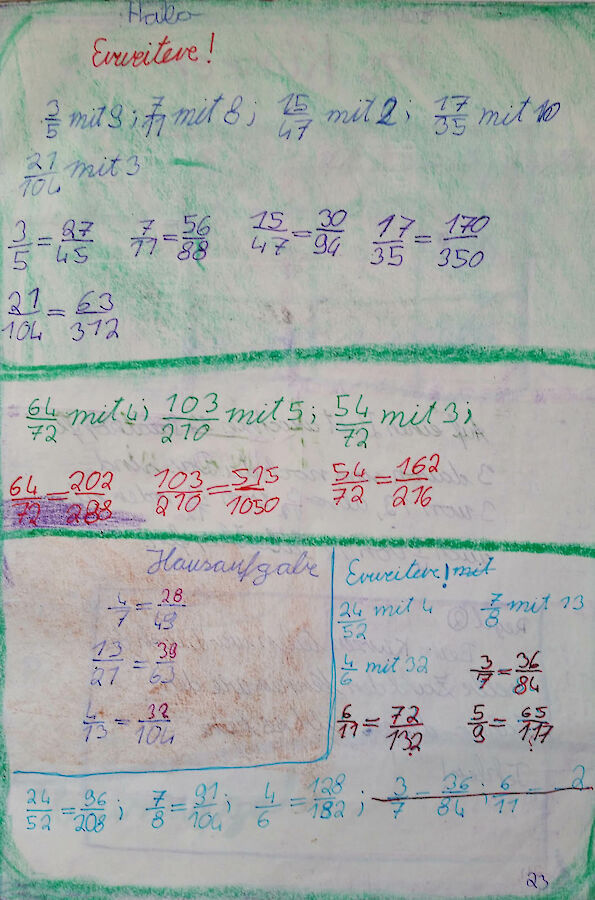 Halo
Erweitere!
3/5 mit 9; 7/11 mit 8; 15/47 mit 2; 17/35 mit 10
21/104 mit 3
3/5 = 27/45 7/11 = 56/88 15/47 = 30/94 17/35 = 170/350
21/104 = 63/312
64/72 mit 4; 103/210 mit 5; 54/72 mit 3;
64/72 = 202/288 103/210 = 515/1050 54/72 = 162/216
Hausaufgabe
4/7 = 28/49
13/21 = 39/63
4/13 = 32/104
Erweitere! mit
24/52 mit 4 7/8 mit 13
4/6 mit 32 3/7 = 36/84
6/11 = 72/132 5/9 = 65/117
24/52 = 96/208; 7/8 = 91/104; 4/6 = 128/192; 3/7 = 36/84; 6/11 = 2
23